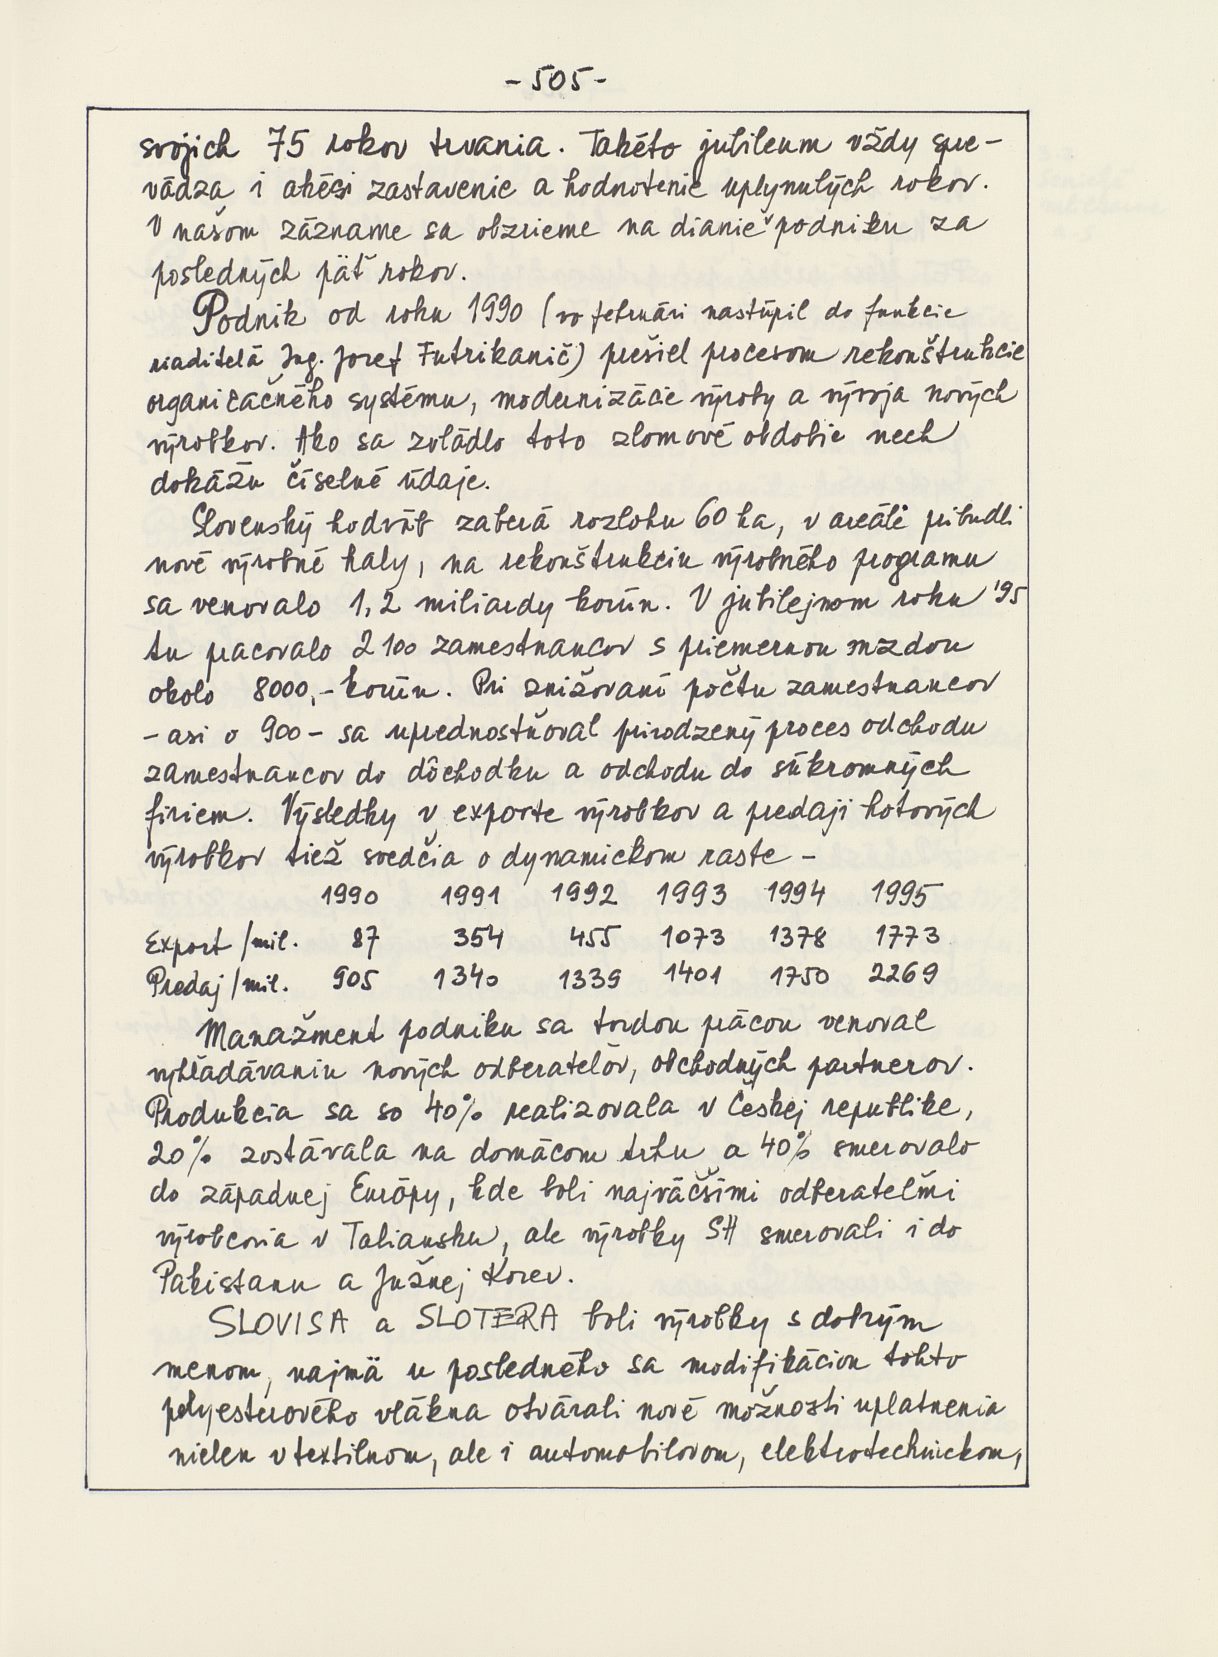 - 505 -
svojich 75 rokov trvania. Takéto jubileum vždy spre-
vádza i akési zastavenie a hodnotenie uplynulých rokov.
V našom zázname sa obzrieme na dianie v podniku za
posledných päť rokov.
Podnik od roku 1990 (vo februári nastúpil do funkcie
riaditeľa Ing. Jozef Futrikanič) prešiel procesom rekonštrukcie
organizačného systému, modernizácie výroby a vývoja nových
výrobkov. Ako sa zvládlo toto zlomové obdobie nech
dokážu číselné údaje.
Slovenský hodváb zaberá rozlohu 60 ha, v areáli pribudli
nové výrobné haly, na rekonštrukciu výrobného programu
sa venovalo 1,2 miliardy korún. V jubilejnom roku '95
tu pracovalo 2100 zamestnancov s priemernou mzdou
okolo 8000,- korún. Pri znižovaní počtu zamestnancov
- asi o 900 - sa uprednostňoval prirodzený proces odchodu
zamestnancov do dôchodku a odchodu do súkromných
firiem. Výsledky v exporte výrobkov a predaji hotových
výrobkov tiež svedčia o dynamickom raste -
1990 1991 1992 1993 1994 1995
Export /mil. 87 354 455 1073 1378 1773
Predaj /mil. 905 1340 1339 1401 1750 2269
Manažment podniku sa tvrdou prácou venoval
vyhľadávaniu nových odberateľov, obchodných partnerov.
Produkcia sa so 40% realizovala v Českej republike,
20% zostávala na domácom trhu a 40% smerovalo
do západnej Európy, kde boli najväčšími odberateľmi
výrobcovia v Taliansku, ale výrobky SH smerovali i do
Pakistanu a Južnej Kórey.
SLOVISA a SLOTERA boli výrobky s dobrým
menom, najmä u posledného sa modifikáciou tohto
polyesterového vlákna otvárali nové možnosti uplatnenia
nielen v textilnom, ale i automobilovom, elektrotechnickom,